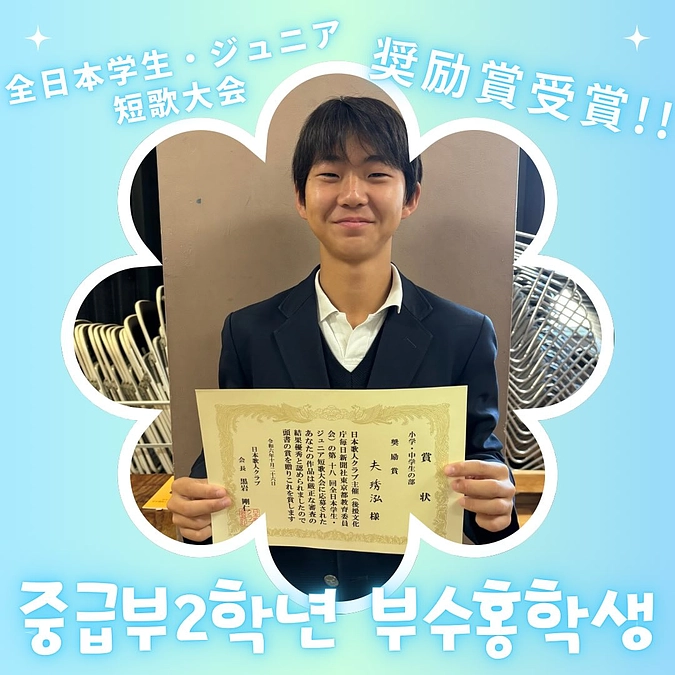 全日本学生・ジュニア
短歌大会
奨励賞受賞!!
賞状
小学・中学生の部
奨励賞
夫琇泓様
日本歌人クラブ主催（後援文化
庁毎日新聞社東京都教育委員
会）の第十八回全日本学生・
ジュニア短歌大会に応募された
あなたの作品は厳正な審査の
結果優秀と認められましたので
頭書の賞を贈りこれを賞します
令和六年十月二十六日
日本歌人クラブ
会長 黒岩剛仁
중급부2학년 부수홍학생